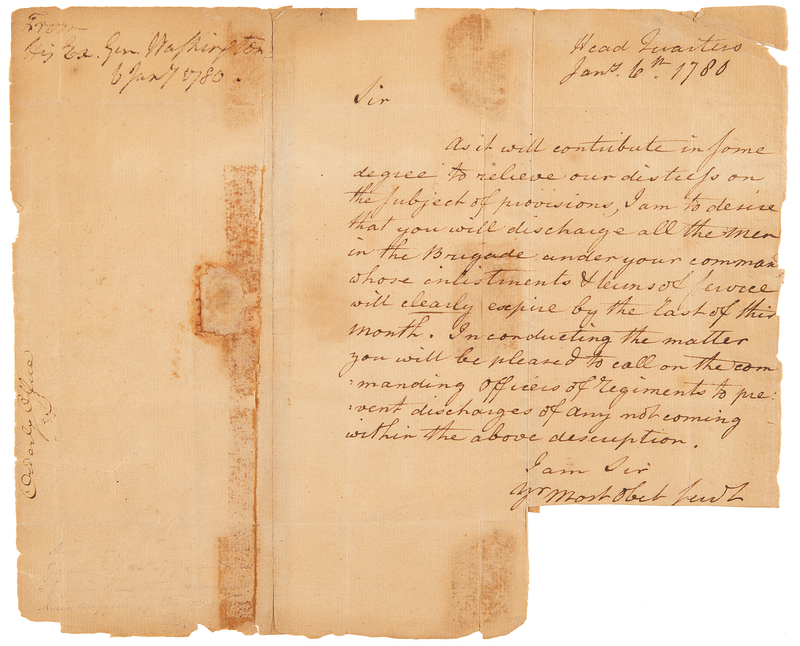 From
His Ex. Gen. Washington
6 Jany 1780.
Head Quarters
Jany. 6th. 1780
Sir
As it will contribute in some
degree to relieve our distress on
the subject of provisions, I am to desire
that you will discharge all the Men
in the Brigade under your comman
whose inlistments & terms of service
will clearly expire by the last of this
Month. In conducting the matter
you will be pleased to call on the com
:manding Officers of Regiments to pre:
:vent discharges of any not coming
within the above description.
I am Sir
yr Most Obet Servt
Orderly Office